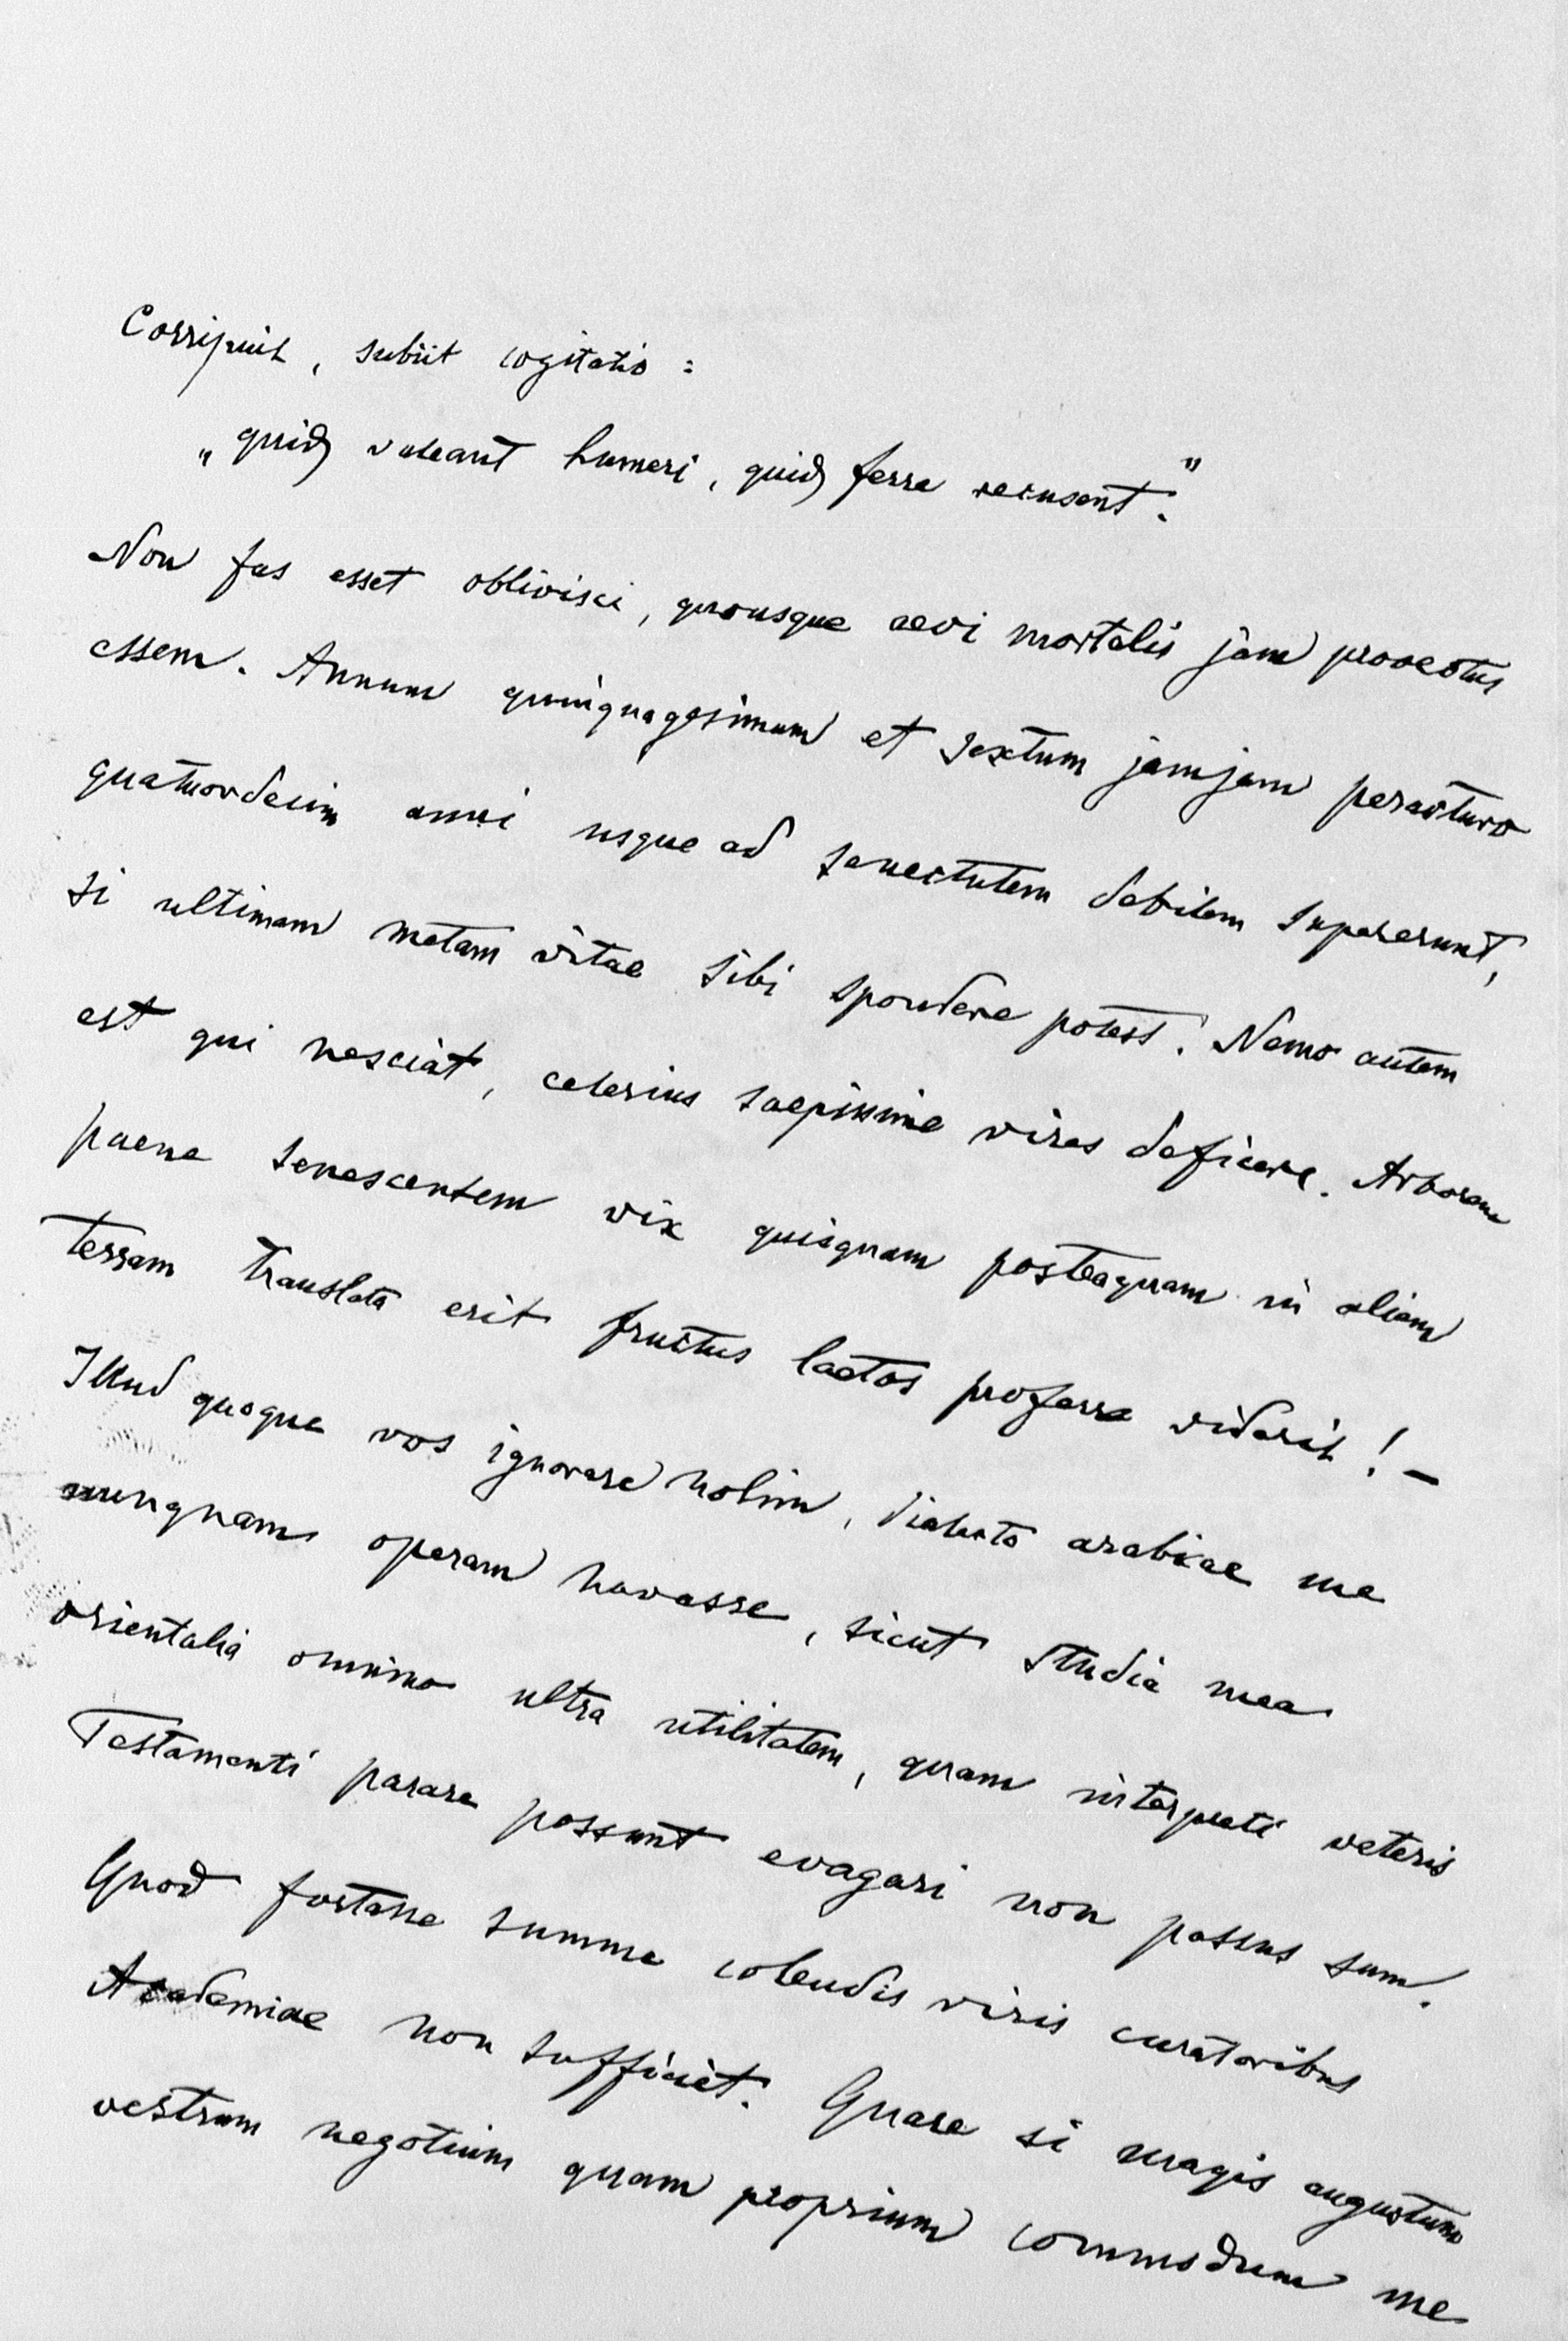 Corripuit, subiit cogitatio:
„quid valeant humeri, quid ferre recusent."
Non fas esset oblivisci, quousque aevi mortalis jam provectus
essem. Annum quinquagesimum et sextum jamjam peracturo
quatuordecim anni usque ad senectutem debilem supererunt,
si ultimam metam vitae sibi spondere potest. Nemo autem
est qui nesciat, celerius saepissime vires deficere. Arborem
paene senescentem vix quisquam posteaquam in aliam
terram translata erit fructus laetos proferre viderit! –
Illud quoque vos ignorare nolim, dialecto arabicae me
nunquam operam navasse, sicut studia mea
orientalia omnino ultra utilitatem, quam interpreti veteris
Testamenti parare possunt evagari non passus sum.
Quod fortasse summe colendis viris curatoribus
Academiae non sufficiet. Quare si magis augustum
vestrum negotium quam proprium commodum me